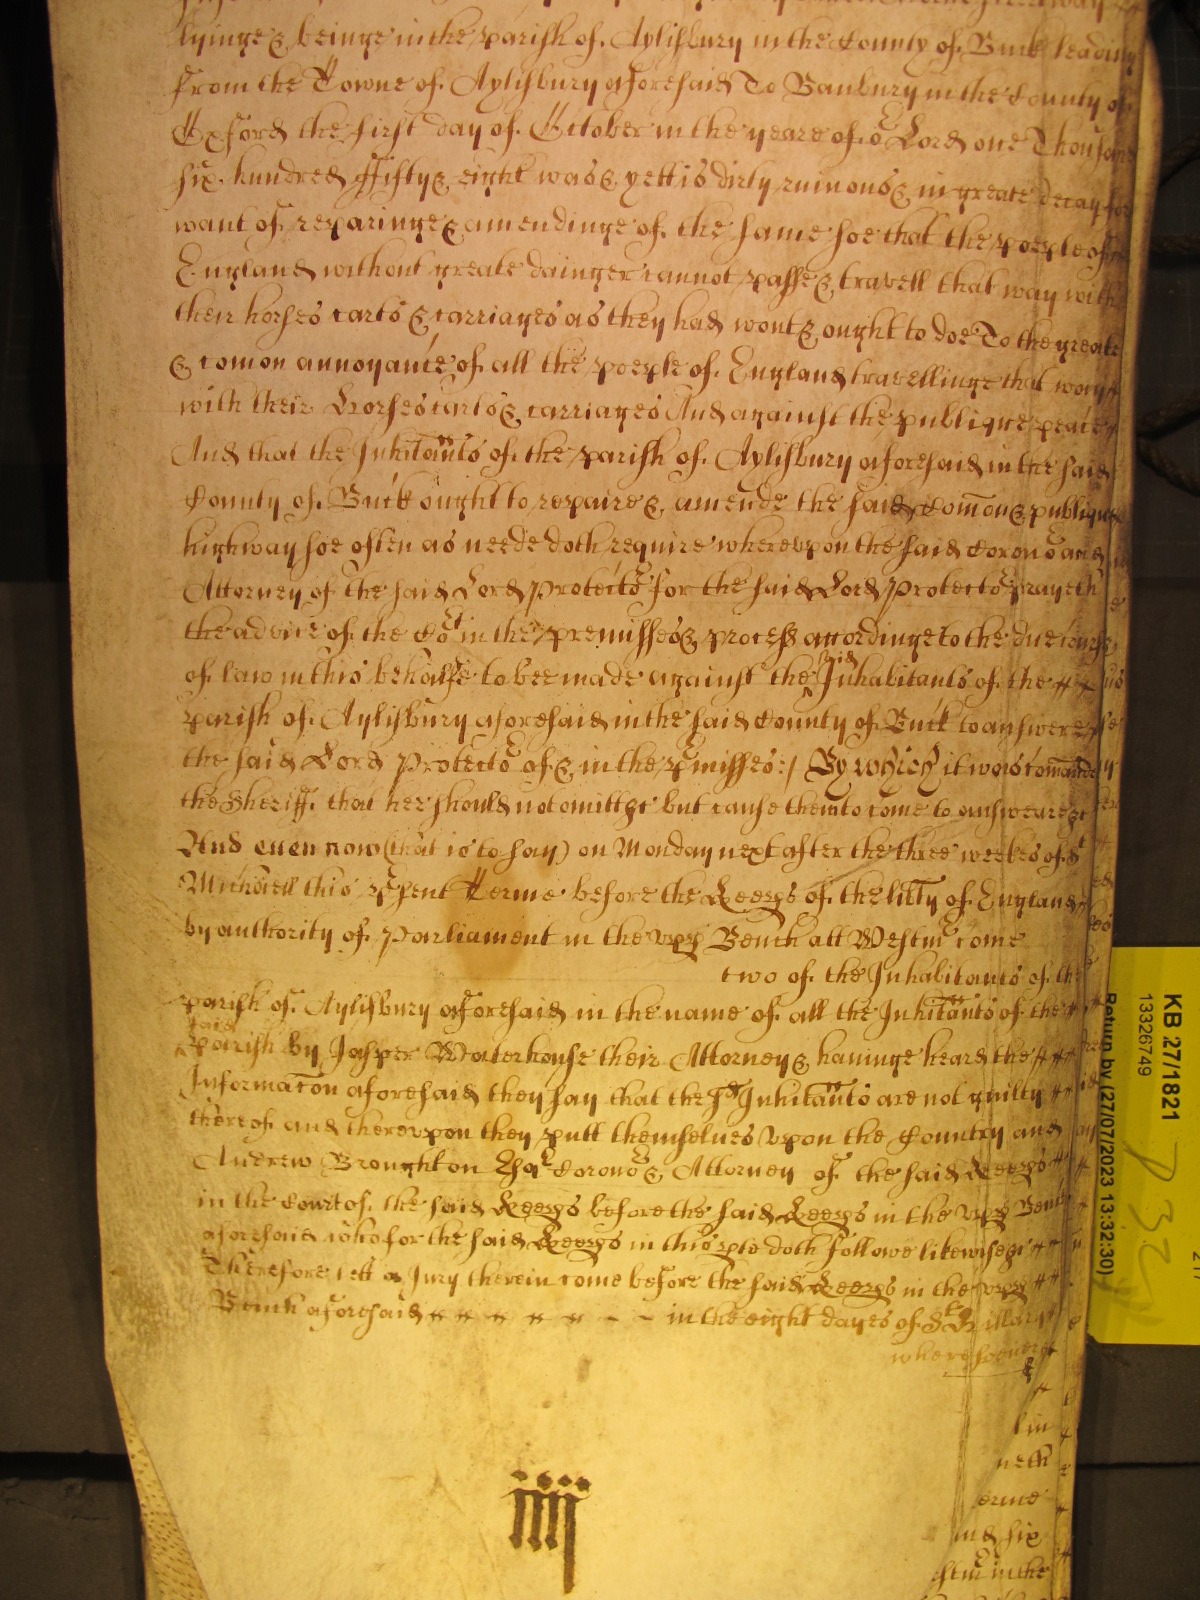 lyinge & beinge in the parish of Aylisbury in the County of Buck leading
from the Towne of Aylisbury aforesaid To Banbury in the County of
Oxford the first day of October in the yeare of oʳ Lord one Thousand
six hundred ffifty & eight was & yett is dirty ruinous & in greate decay for
want of repairinge & amendinge of the same soe that the people of
England without greate dainger cannot passe & travell that way with
their horses carts & carriages as they had wont & ought to doe To the greate
& comon annoyance of all the people of England travellinge that way
with their Horses carts & carriages And against the publique peace
And that the Inhitants of the parish of Aylisbury aforesaid in the said
County of Buck ought to repaire & amende the said Comon & publique
highway soe often as neede doth require wherevpon the said Coronoʳ and
Attorney of the said Lord Protectoʳ for the said Lord Protectoʳ prayeth
the advice of the Coʳt in the premisses & process accordinge to the due course
of law in this behalfe to bee made against the said Inhabitants of the
parish of Aylisbury aforesaid in the said County of Buck to answere
the said Lord Protectoʳ of & in the pʳmisses :/ By which it was comanded
the Sheriff that hee should not omitt &c but cause them to come to answeare &c
And euen now (that is to say) on Monday next after the three weekes of Sᵗ
Michaell this pʳsent Terme before the Keepʳs of the libty of England
by authority of Parliament in the vppʳ Bench att Westmʳ come
two of the Inhabitants of the
parish of Aylisbury aforesaid in the name of all the Inhitants of the
said
parish by Jasper Waterhouse their Attorney & hauinge heard the
Informacon aforesaid they say that the sᵈ Inhitants are not guilty
thereof and therevpon they putt themselues vpon the Country and
Andrew Broughton Esqʳ Coronoʳ & Attorney of the said Keepʳs
in the Court of the said Keepʳs before the said Keepʳs in the vppʳ Bench
aforesaid who for the said Keepʳs in this pte doth followe likewise &c
Therefore lett a Jury therein come before the said Keepʳs in the vppʳ
Bench aforesaid in the eight dayes of Sᵗ Hillary
wheresoeuer &c
lin
neth
erme
nd six
estmʳ in the
iiij
KB 27/1821
13326749
Return by (27/07/2023 13:32:30)